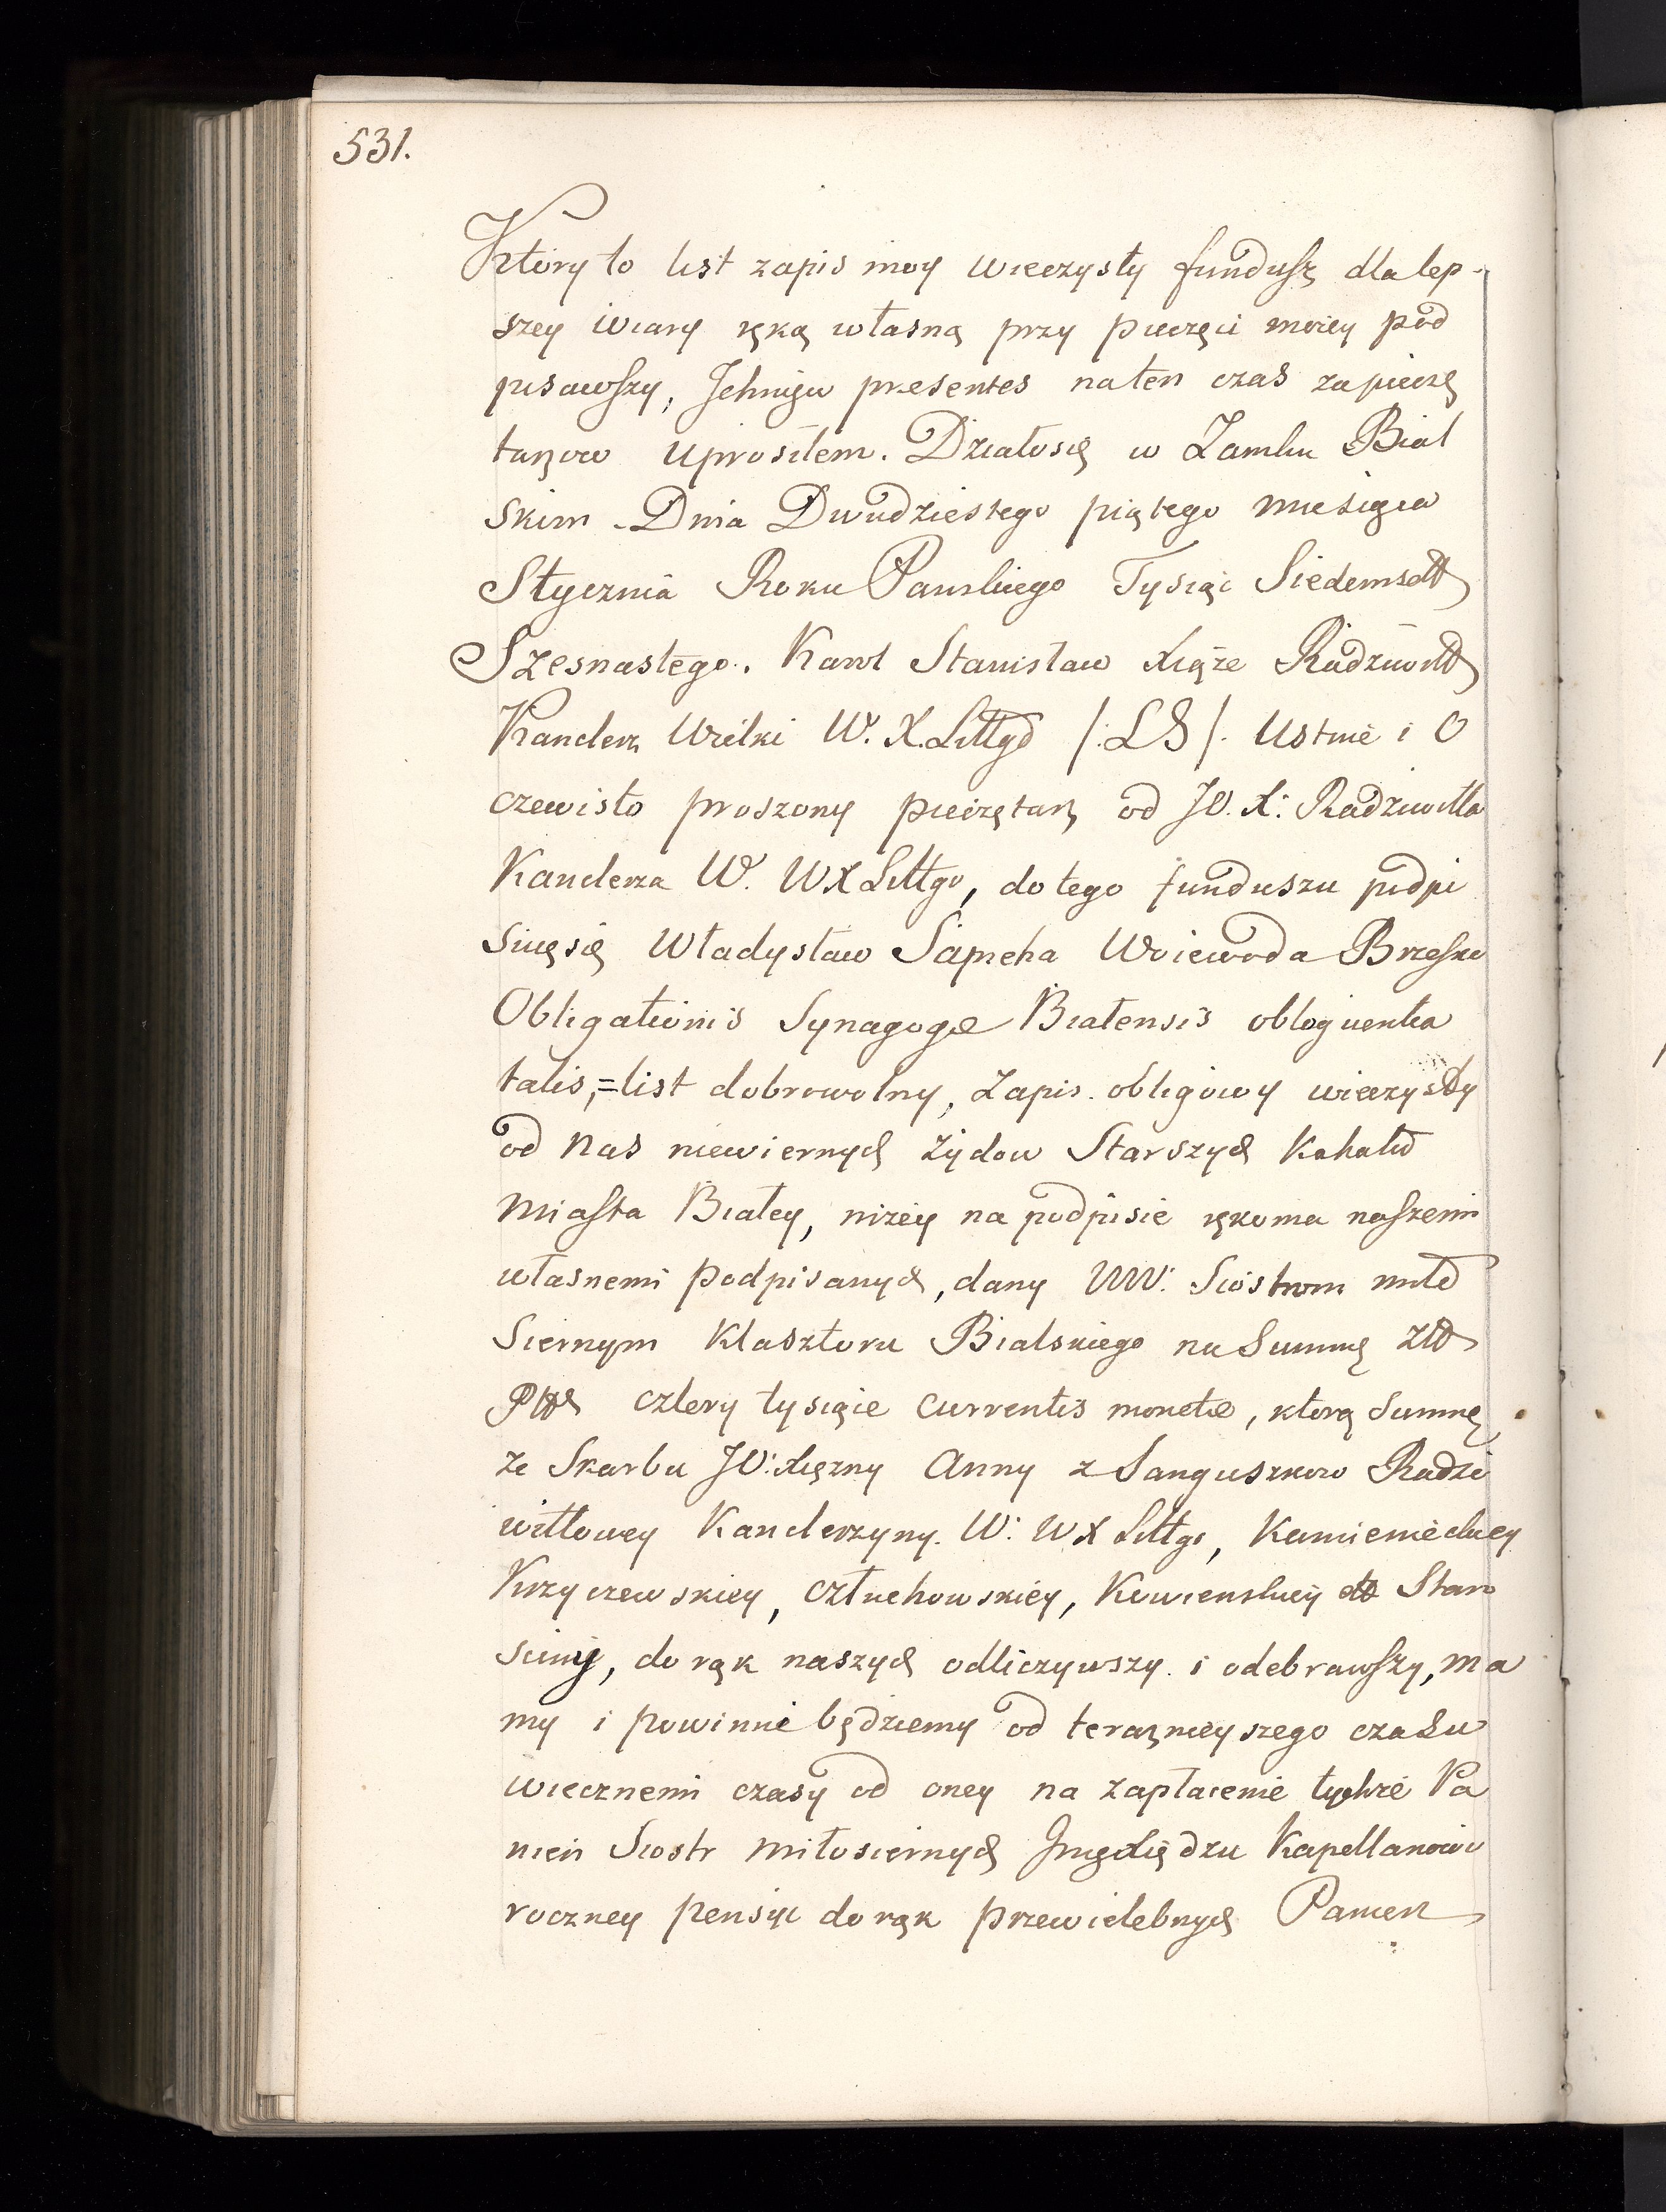 531.
Który to list zapis moy wieczysty fundusz dla lep-
szey wiary ręką własną przy pieczęci moiey pod
pisawszy, Ichmćw presentes na ten czas za pieczę
tarzow uprosiłem. Działo się w Zamku Bial
skim Dnia Dwudziestego piątego miesiąca
Stycznia Roku Panskiego Tysiąc Siedemsett
Szesnastego. Karol Stanisław Xiąże Radziwiłł
Kanclerz Wielki W. X. Littgo /:LS/: Ustnie i O
czewisto proszony pieczętarz od JO. X: Radziwiłła
Kanclerza W. WX Littgo, do tego funduszu podpi
suię się Władysław Sapieha Woiewoda Brzeski
Obligationis Synagogæ Białensis obloquentia
talis,=list dobrowolny, zapis obligowy wieczysty
od nas niewiernych żydow Starszych Kahału
Miasta Białey, niżey na podpisie rękoma naszemi
własnemi podpisanych, dany WW: Siostrom miło
siernym Klasztoru Bialskiego na Summę Złł
Pllch cztery tysiące currentis monetæ, którą Summę
ze Skarbu JO: Xiężny Anny z Sanguszkow Radzi
wiłłowey Kanclerzyny W: WX Littgo, Kamienieckiey
Krzyczewskiey, Człuchowskiey, Kowienskiey ett Staro
sciny, do rąk naszych odliczywszy i odebrawszy, ma
my i powinni będziemy od teraznieyszego czasu
wiecznemi czasy od oney na zapłacenie tychże Pa
nien Siostr Miłosiernych Xiędzu Kapellanowi
roczney pensyi do rąk przewielebnych Panien